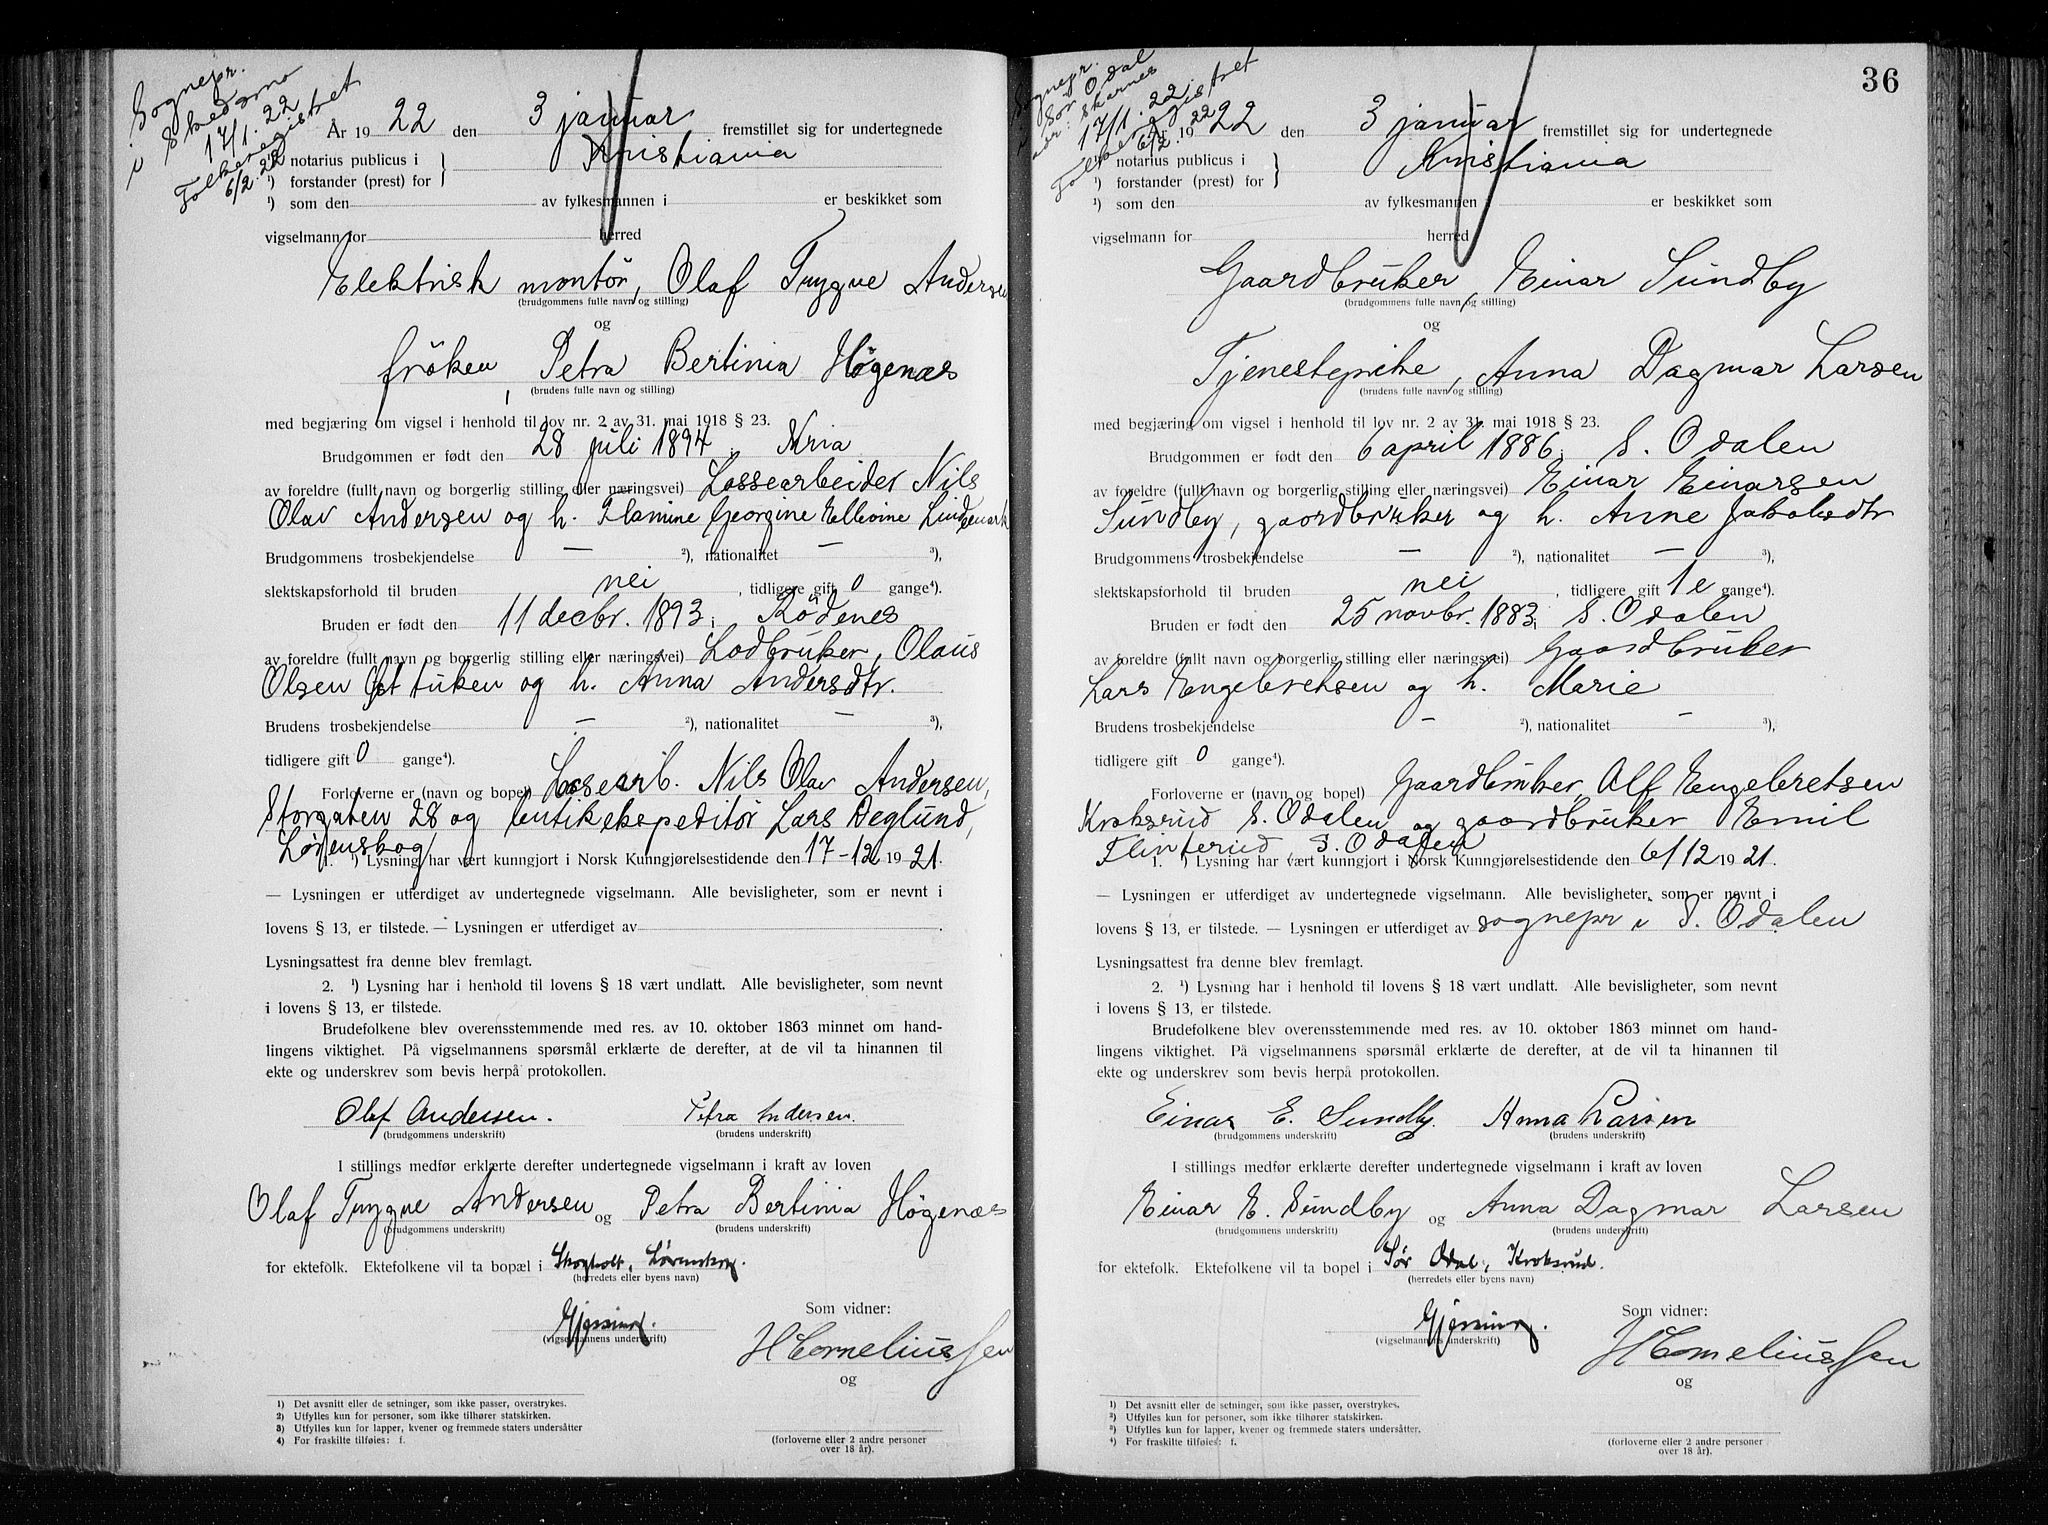 Sognepr.
i Skedsmo
17/1. 22
Folkeregistret
6/2. 22
År 1922 den 3 januar fremstillet sig for undertegnede
¹) notarius publicus i } Kristiania
¹) forstander (prest) for
¹) som den av fylkesmannen i er beskikket som
vigselmann for herred
Elektrisk montör, Olaf Trygve Andersen
(brudgommens fulle navn og stilling)
og
fröken, Petra Bertinia Høgenæs
(brudens fulle navn og stilling)
med begjæring om vigsel i henhold til lov nr. 2 av 31. mai 1918 § 23.
Brudgommen er født den 28 juli 1894, Kria
av foreldre (fullt navn og borgerlig stilling eller næringsvei) Lossearbeider Nils
Olav Andersen og h. Flamine Georgine Ellevine Lindemark
Brudgommens trosbekjendelse — ²), nationalitet — ³),
slektskapsforhold til bruden nei, tidligere gift 0 gange⁴).
Bruden er født den 11 decbr. 1893, Rödenes
av foreldre (fullt navn og borgerlig stilling eller næringsvei) Lodbruker, Olaus
Olsen tuken og h. Anna Andersdtr.
Brudens trosbekjendelse — ²), nationalitet — ³),
tidligere gift 0 gange⁴).
Forloverne er (navn og bopel) Lossearb. Nils Olav Andersen,
Storgaten 28 og butikekspeditör Lars Deglund,
Lørenskog
1. ¹) Lysning har vært kunngjort i Norsk Kunngjørelsestidende den 17-12 1921
— Lysningen er utferdiget av undertegnede vigselmann. Alle bevisligheter, som er nevnt i
lovens § 13, er tilstede. — Lysningen er utferdiget av .
Lysningsattest fra denne blev fremlagt.
2. ¹) Lysning har i henhold til lovens § 18 vært undlatt. Alle bevisligheter, som nevnt
i lovens § 13, er tilstede.
Brudefolkene blev overensstemmende med res. av 10. oktober 1863 minnet om hand-
lingens viktighet. På vigselmannens spørsmål erklærte de derefter, at de vil ta hinannen til
ekte og underskrev som bevis herpå protokollen.
Olaf Andersen. Petra Andersen.
(brudgommens underskrift) (brudens underskrift)
I stillings medfør erklærte derefter undertegnede vigselmann i kraft av loven
Olaf Trygve Andersen og Petra Bertinia Høgenæs
(brudgommens underskrift) (brudens underskrift)
for ektefolk. Ektefolkene vil ta bopæl i Skogholt, Lørenskog.
(herredets eller byens navn)
Gjessing. Som vidner:
(vigselmannens underskrift)
H Corneliussen
og
1) Det avsnitt eller de setninger, som ikke passer, overstrykes.
2) Utfylles kun for personer, som ikke tilhører statskirken.
3) Utfylles kun for lapper, kvener og fremmede staters undersåtter
4) For fraskilte tilføies: f.
(forloverne eller 2 andre personer
over 18 år).
36
Sognepr.
i Sör Odal
adr: Skarnes
17/1. 22
Folkeregistret
6/2. 22
År 1922 den 3 januar fremstillet sig for undertegnede
¹) notarius publicus i } Kristiania
¹) forstander (prest) for
¹) som den av fylkesmannen i er beskikket som
vigselmann for herred
Gaardbruker, Einar Sundby
(brudgommens fulle navn og stilling)
og
Tjenestepike, Anna Dagmar Larsen
(brudens fulle navn og stilling)
med begjæring om vigsel i henhold til lov nr. 2 av 31. mai 1918 § 23.
Brudgommen er født den 6 april 1886, S. Odalen
av foreldre (fullt navn og borgerlig stilling eller næringsvei) Einar Einarsen
Sundby, gaardbruker og h. Anne Jakobsdtr
Brudgommens trosbekjendelse — ²), nationalitet — ³),
slektskapsforhold til bruden nei, tidligere gift 1 e gange⁴).
Bruden er født den 25 novbr. 1883, S. Odalen
av foreldre (fullt navn og borgerlig stilling eller næringsvei) Gaardbruker
Lars Engebretsen og h. Marie
Brudens trosbekjendelse — ²), nationalitet — ³),
tidligere gift 0 gange⁴).
Forloverne er (navn og bopel) Gaardbruker Alf Engebretsen
Kroksrud S. Odalen og gaardbruker Emil
Flinterud, S. Odalen
1. ¹) Lysning har vært kunngjort i Norsk Kunngjørelsestidende den 6/12 1921.
— Lysningen er utferdiget av undertegnede vigselmann. Alle bevisligheter, som er nevnt i
lovens § 13, er tilstede. — Lysningen er utferdiget av sognepr i S. Odalen
Lysningsattest fra denne blev fremlagt.
2. ¹) Lysning har i henhold til lovens § 18 vært undlatt. Alle bevisligheter, som nevnt
i lovens § 13, er tilstede.
Brudefolkene blev overensstemmende med res. av 10. oktober 1863 minnet om hand-
lingens viktighet. På vigselmannens spørsmål erklærte de derefter, at de vil ta hinannen til
ekte og underskrev som bevis herpå protokollen.
Einar E. Sundby. Anna Larsen
(brudgommens underskrift) (brudens underskrift)
I stillings medfør erklærte derefter undertegnede vigselmann i kraft av loven
Einar E. Sundby og Anna Dagmar Larsen
(brudgommens underskrift) (brudens underskrift)
for ektefolk. Ektefolkene vil ta bopel i Sør Odal, Kroksrud.
(herredets eller byens navn)
Gjessing. Som vidner:
(vigselmannens underskrift)
H Corneliussen
og
1) Det avsnitt eller de setninger, som ikke passer, overstrykes.
²) Utfylles kun for personer, som ikke tilhører statskirken.
³) Utfylles kun for lapper, kvener og fremmede staters undersåtter.
⁴) For fraskilte tilføies: f.
(forloverne eller 2 andre personer
over 18 år).